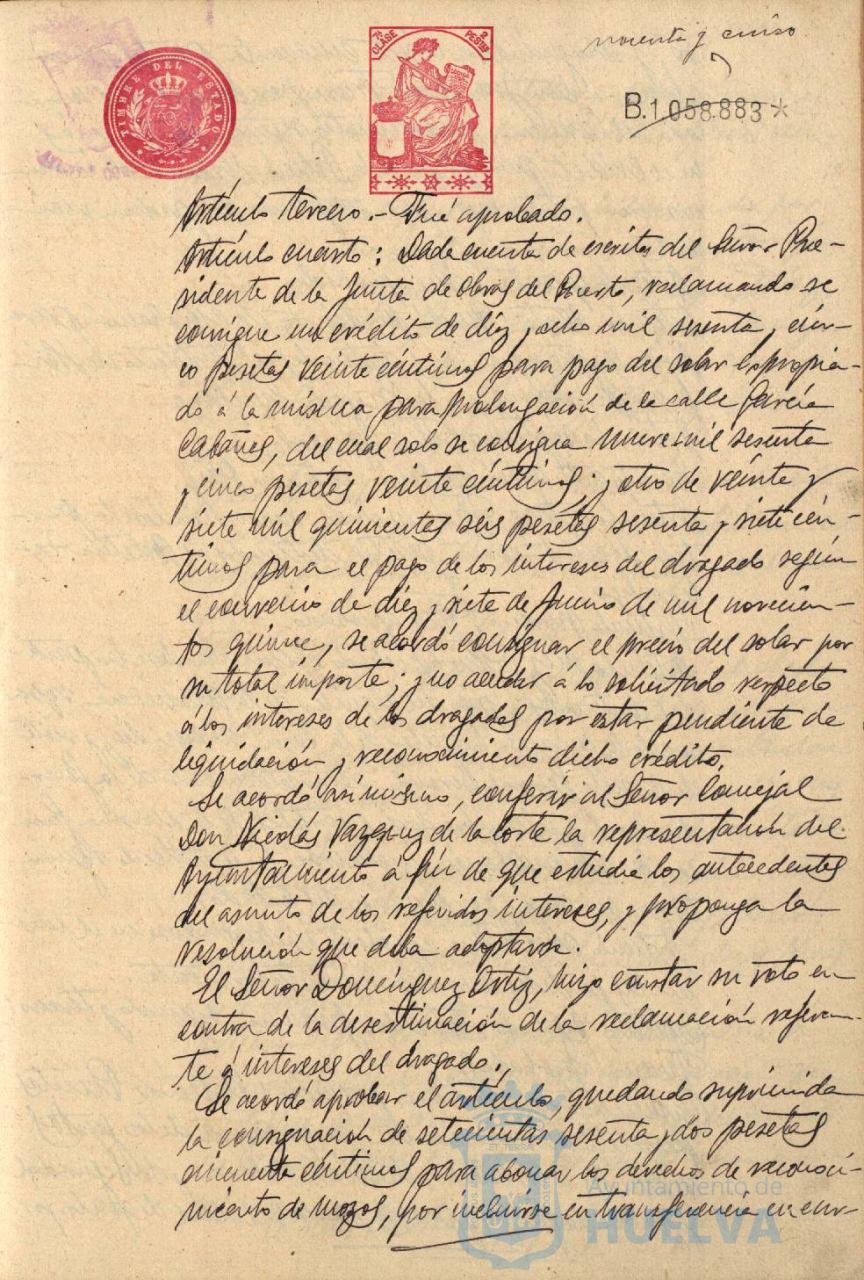 TIMBRE DEL ESTADO
7ª CLASE 2 PESETAS
noventa y cinco
B.1.058.883*
Artículo tercero.- Fué aprobado.
Artículo cuarto: Dada cuenta de escritos del Señor Pre-
sidente de la Junta de Obras del Puerto, reclamando se
consigne un crédito de diez y ocho mil sesenta y cin-
co pesetas veinte céntimos para pago del solar expropia-
do á la misma para prolongación de la calle García
Cabañas, del cual solo se consigna nueve mil sesenta
y cinco pesetas veinte céntimos; y otro de veinte y
siete mil quinientas séis pesetas sesenta y siete cén-
timos para el pago de los intereses del dragado según
el convenio de diez y siete de Junio de mil novecien-
tos quince, se acordó consignar el precio del solar por
su total importe; y no acceder á lo solicitado respecto
á los intereses de los dragados por estar pendiente de
liquidación y reconocimiento dicho crédito.
Se acordó asímismo, conferir al Señor Concejal
Don Nicolás Vazquez de la Corte la representación del
Ayuntamiento á fín de que estudie los antecedentes
del asunto de los referidos intereses, y proponga la
resolución que deba adoptarse.
El Señor Domínguez Ortiz, hizo constar su voto en
contra de la desestimación de la reclamación referen-
te á intereses del dragado.
Se acordó aprobar el artículo, quedando suprimida
la consignación de setecientas sesenta y dos pesetas
cincuenta céntimos para abonar los derechos de reconoci-
miento de mozos, por incluirse en transferencia en cur-
Ayuntamiento de
HUELVA